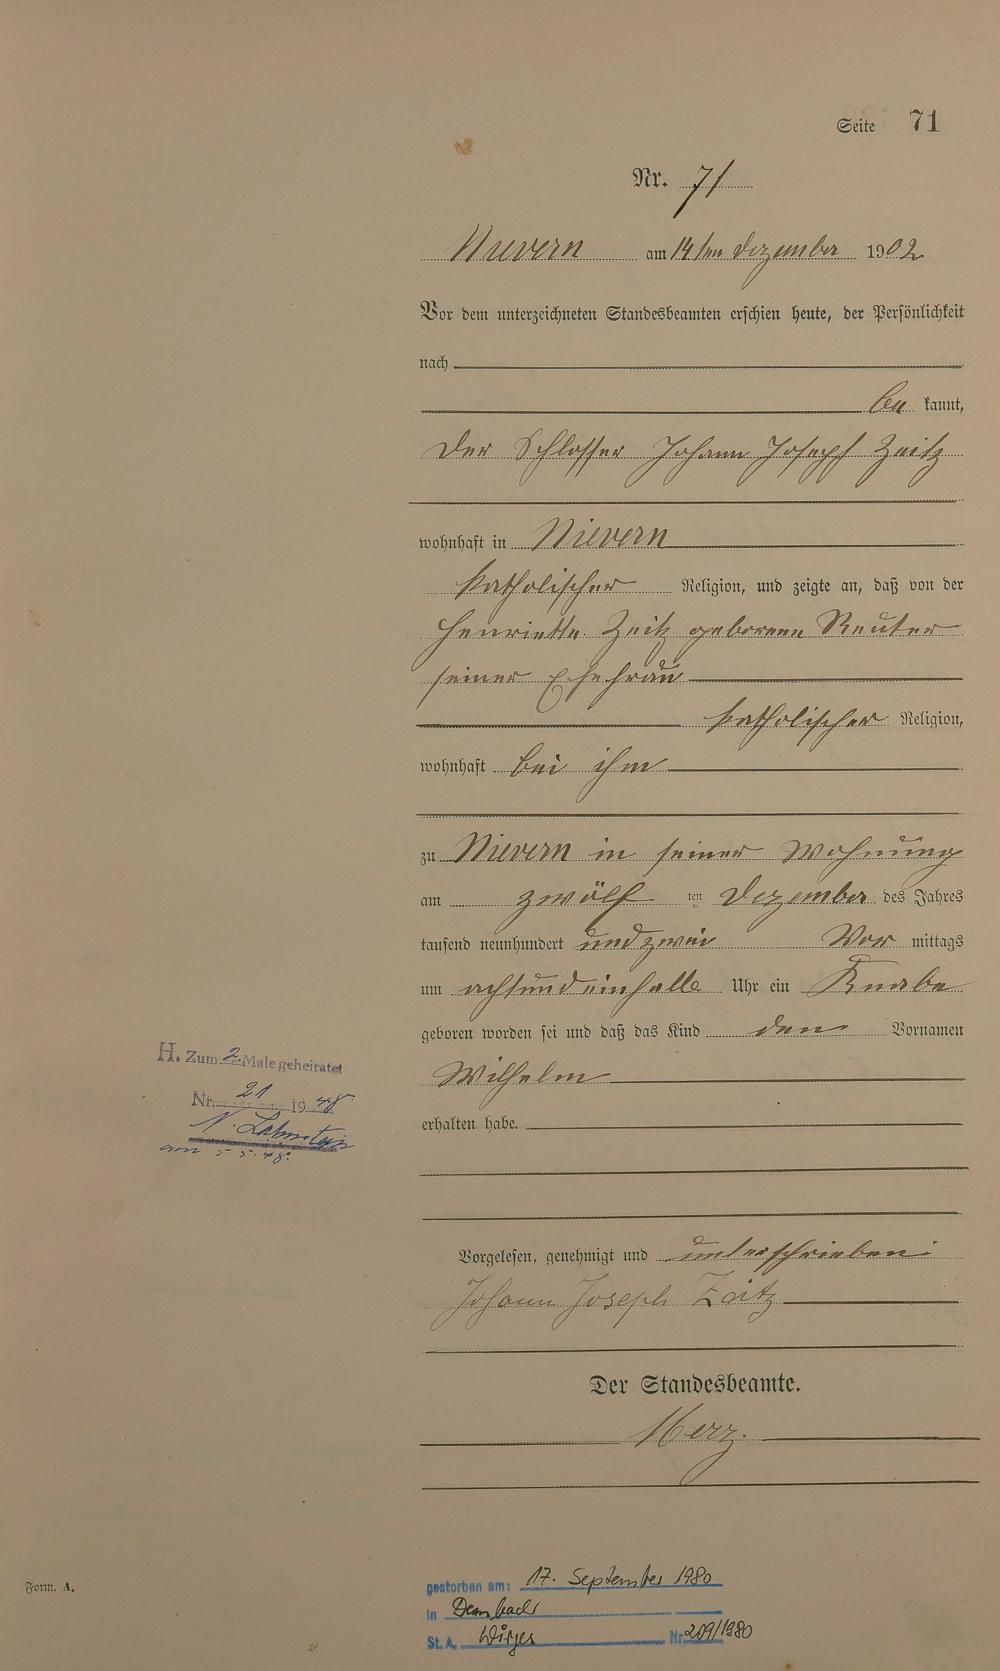 Seite 71
Nr. 71
Nievern am 14ten Dezember 1902
Vor dem unterzeichneten Standesbeamten erschien heute, der Persönlichkeit
nach
be kannt,
der Schlosser Johann Joseph Zeitz
wohnhaft in Nievern
katholischer Religion, und zeigte an, daß von der
Henriette Zeitz geborenen Reuter
seiner Ehefrau
katholischer Religion,
wohnhaft bei ihm
zu Nievern in seiner Wohnung
am zwölf ten Dezember des Jahres
tausend neunhundert und zwei Vor mittags
um achtundeinhalb Uhr ein Knabe
geboren worden sei und daß das Kind den Vornamen
Wilhelm
erhalten habe.
H. Zum 2. Male geheiratet
Nr. 21 1948
N. Lahnstein
am 5.5.48.
Vorgelesen, genehmigt und unterschrieben:
Johann Joseph Zeitz
Der Standesbeamte.
Merz.
Form. A.
gestorben am: 17. September 1980
in Dernbach
St. A. Wirges Nr. 209/1980